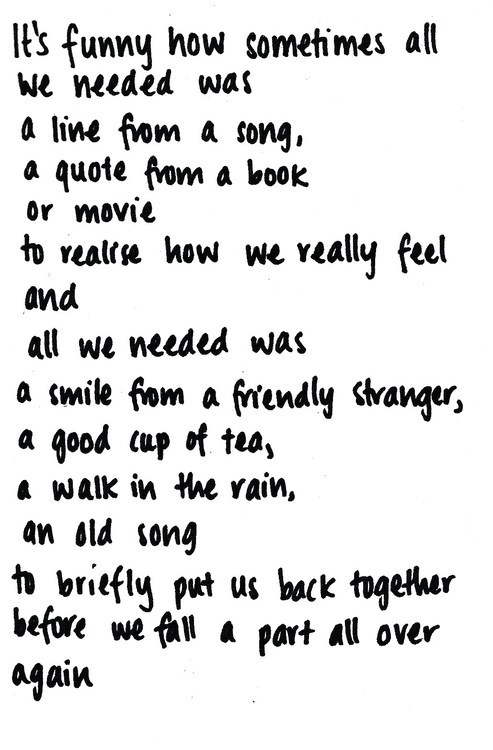 It's funny how sometimes all
we needed was
a line from a song,
a quote from a book
or movie
to realise how we really feel
and
all we needed was
a smile from a friendly stranger,
a good cup of tea,
a walk in the rain,
an old song
to briefly put us back together
before we fall a part all over
again